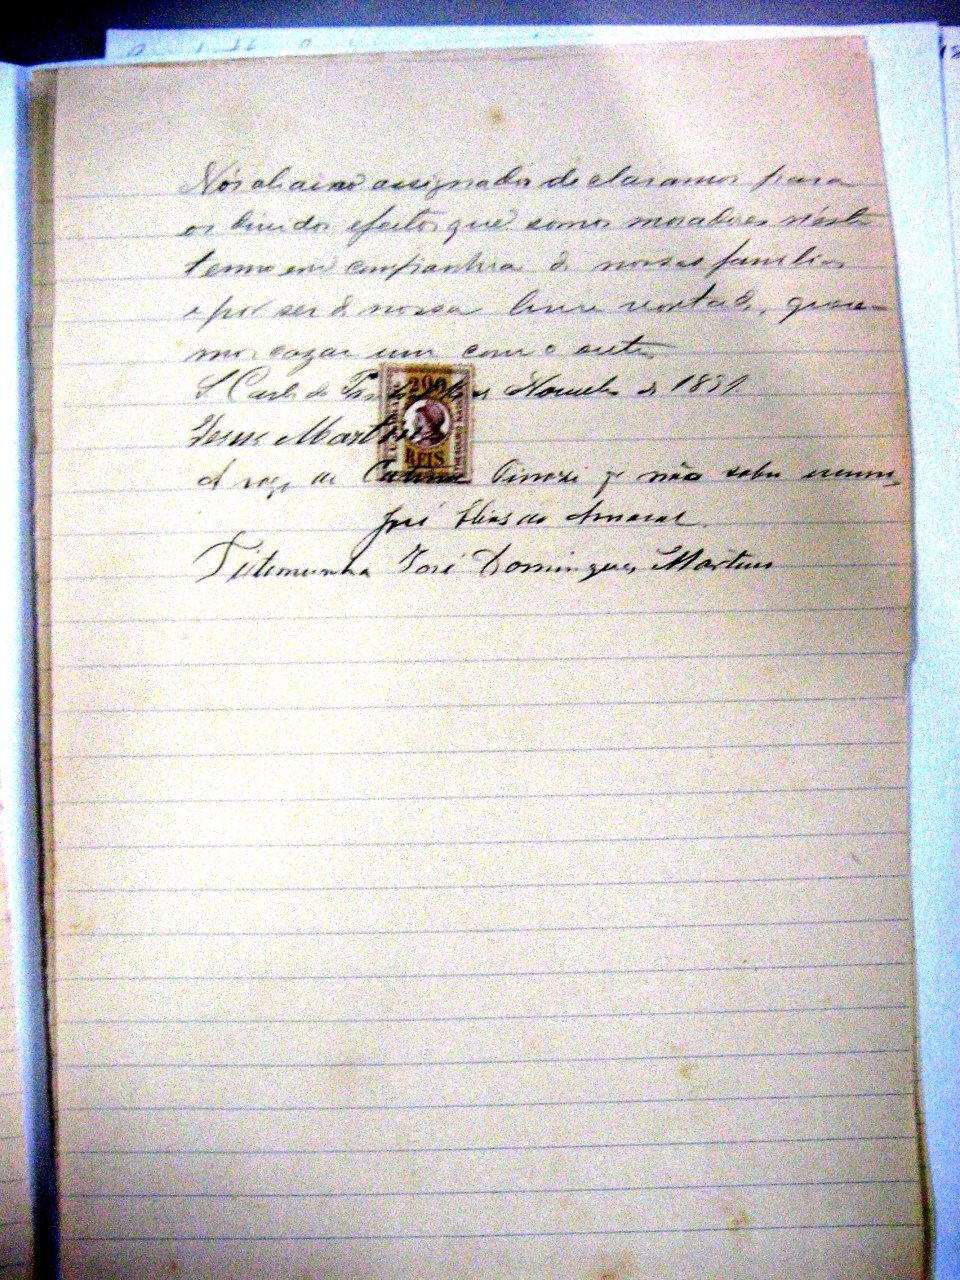 Nós abaixo assignados declaramos para
os devidos efeitos que somos moradores n'este
termo em companhia de nossas familias
e por ser de nossa livre vontade, quere-
mos cazar um com o outro
S. Carlos do Novembro de 1891
200
REIS
Jesus Martins
A rogo de Pinozi pr não saber
José Elias do Amaral
Testemunha José Domingues Martins